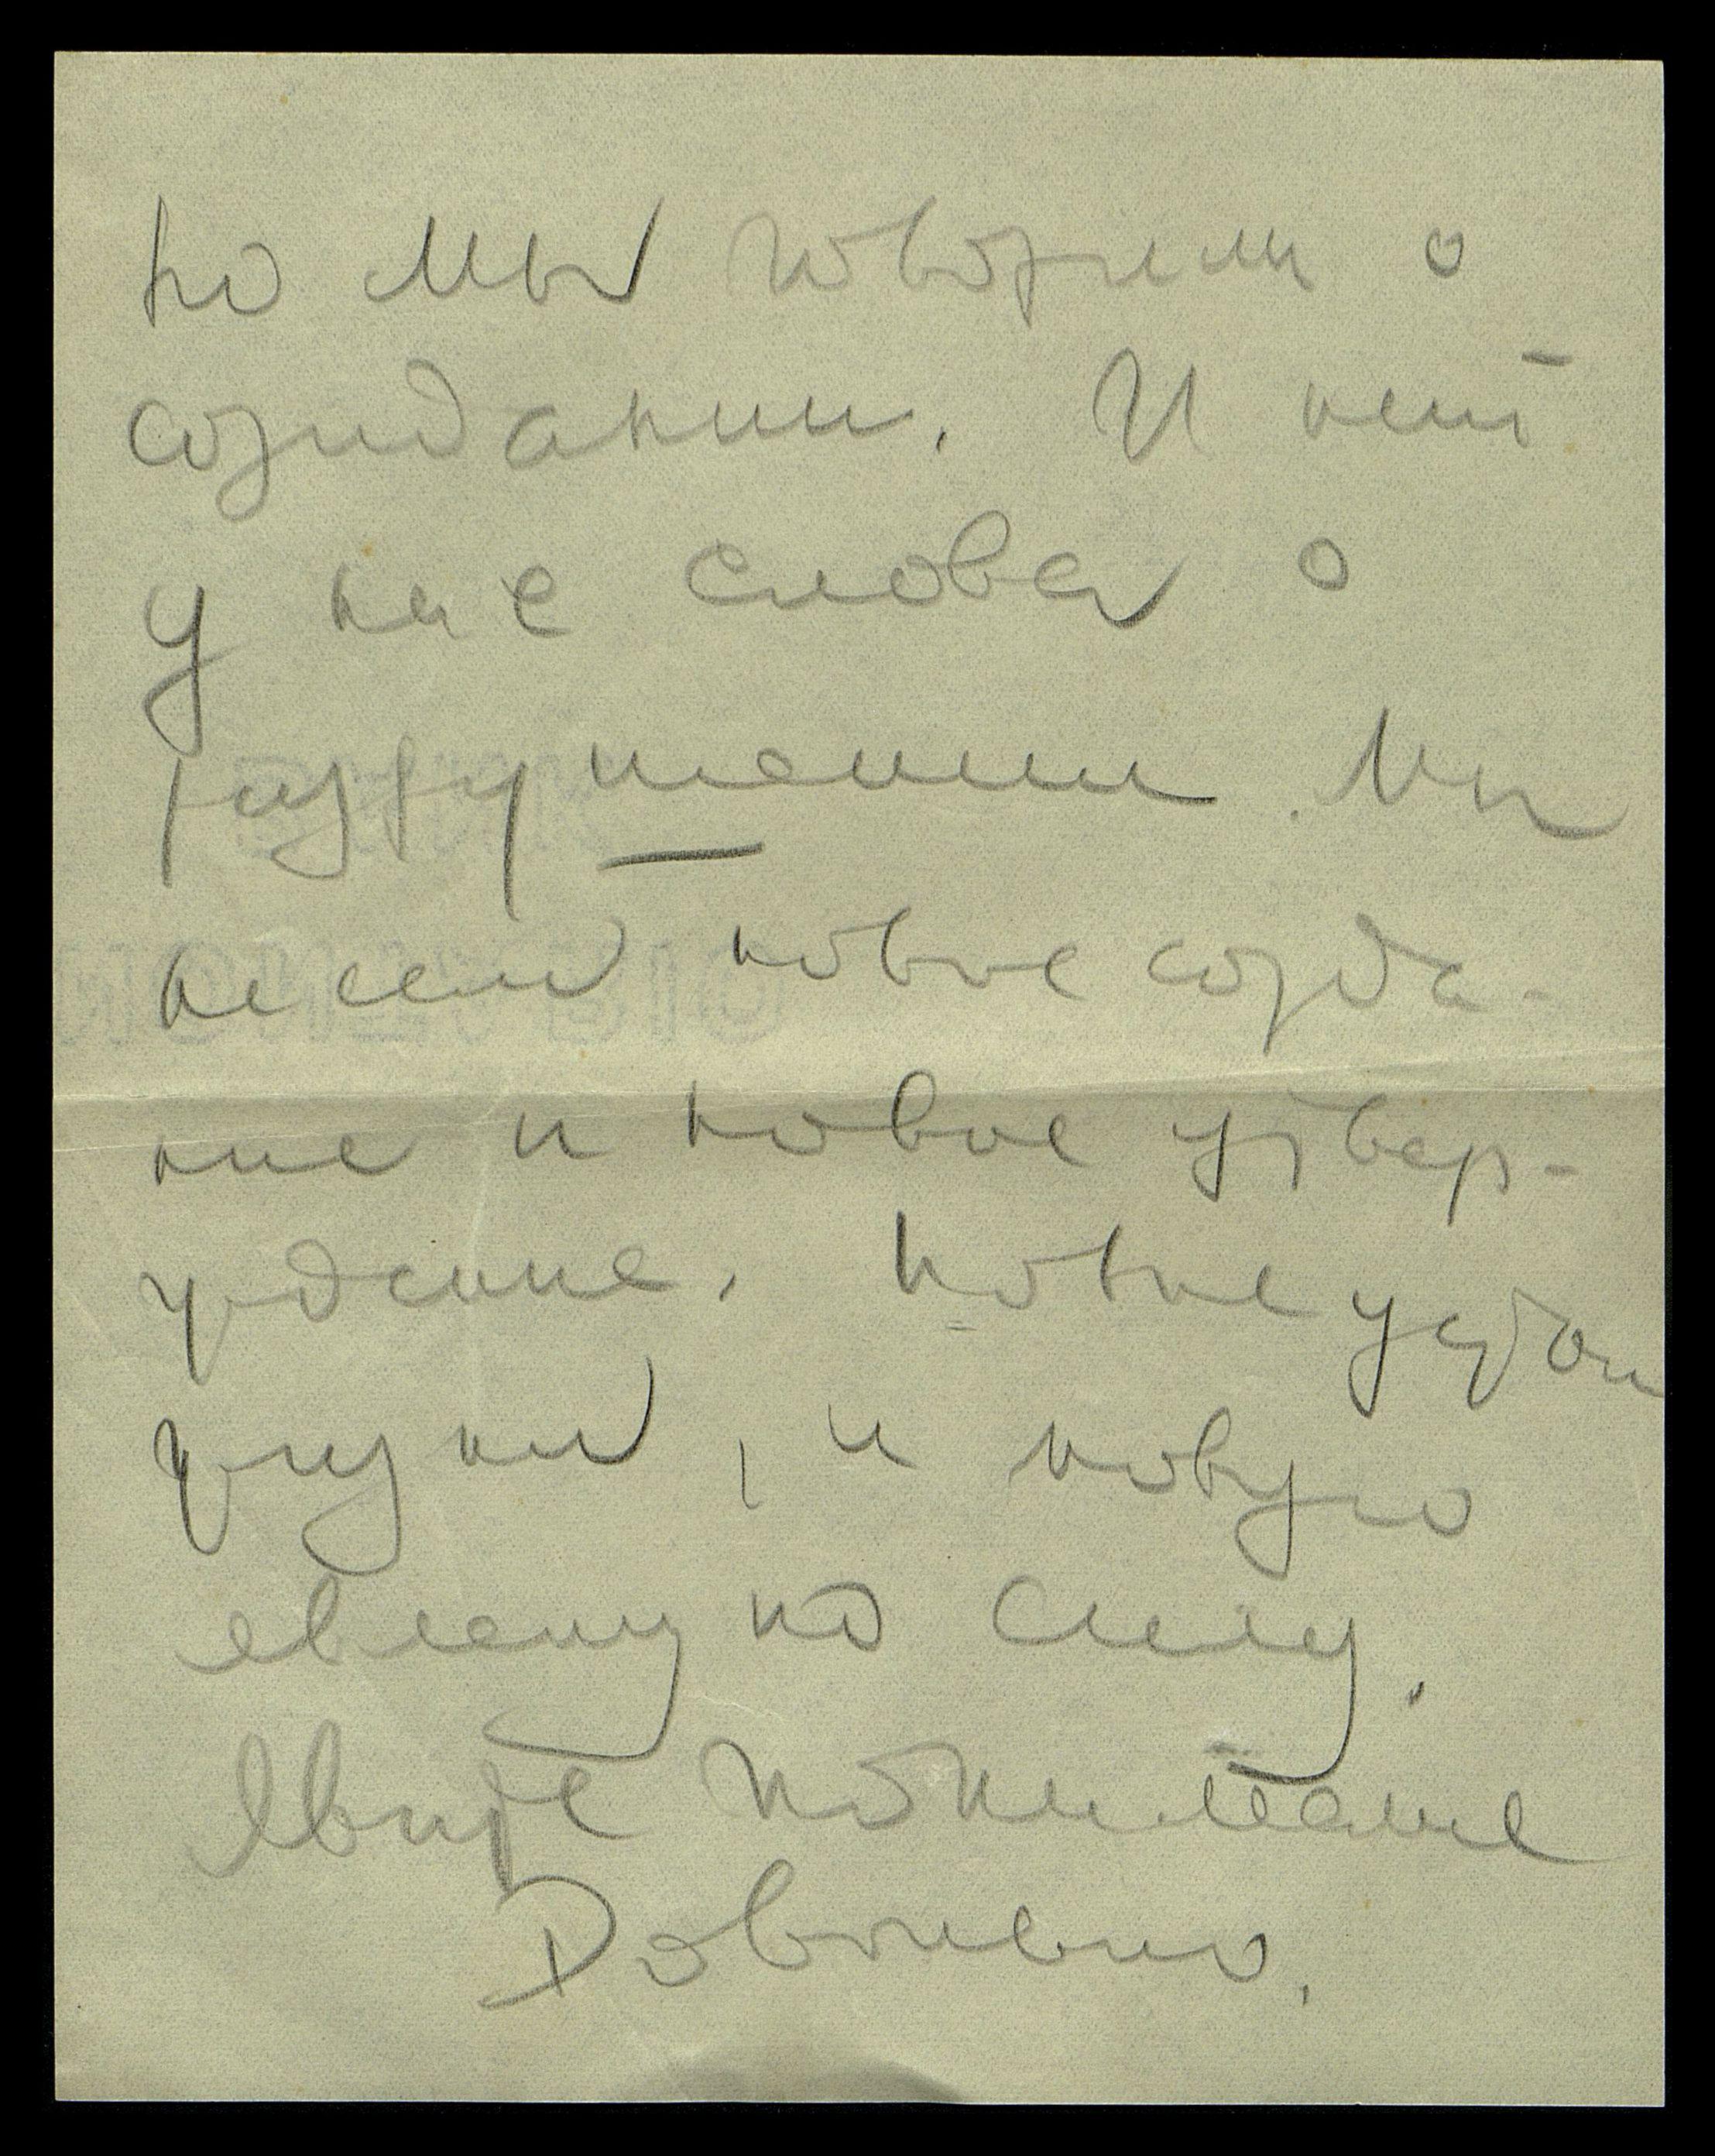 но мы говорим о
созидании. И нет
у нас слова о
разрушении. Мы
несем новое созда-
ние и новое утвер-
ждение. Новые удои
жизни, и новую
явленную силу.
Явите понимание
Довольно.